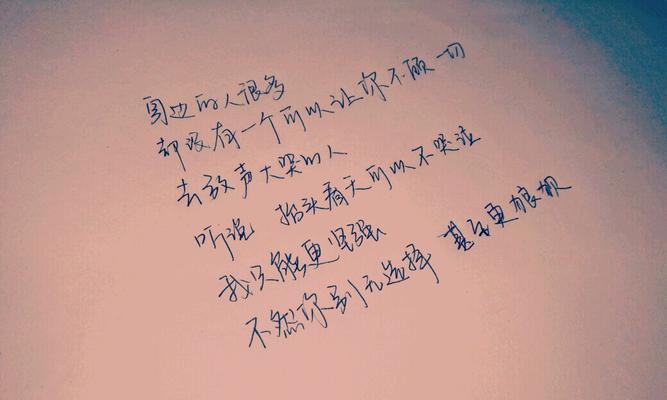 周边的人很多
都没有一个可以让你不顾一切
去放声大哭的人
听说 抬头看天可以不哭泣
我只能更坚强
不然你别无选择 甚至更狼狈